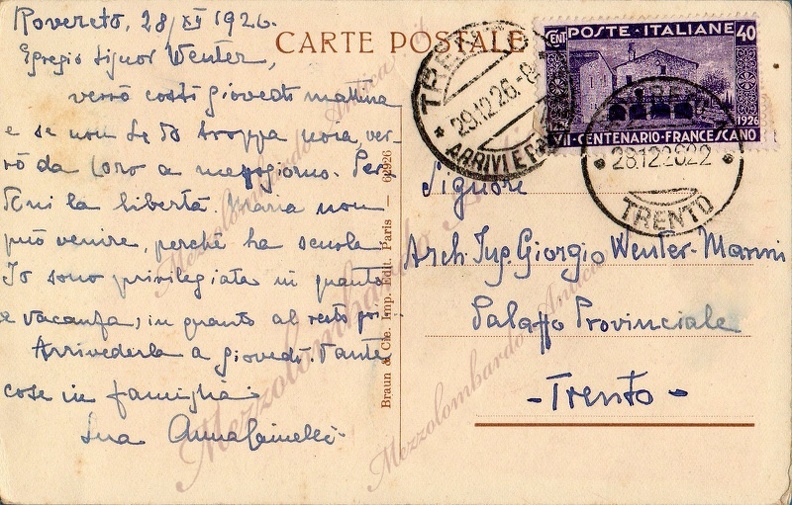 Rovereto, 28/XII 1926.
Egregio Signor Wenter,
verrò costì giovedì mattina
e se non Le dò troppa noia, ver-
rò da Loro a mezzogiorno. Per-
doni la libertà. Maria non
può venire, perchè ha scuola
Io sono privilegiata in quanto
a vacanza, in quanto al resto poi
Arrivederla a giovedì. Tante
cose in famiglia
Sua Anna
CARTE POSTALE
Braun & Cie. Imp. Edit. Paris — 62926
TRENTO
29.12.26.-8
ARRIVI E
POSTE·ITALIANE
CENT 40
1926
VII·CENTENARIO·FRANCESCANO
28.12.26.22
TRENTO
Signore
Arch. Ing. Giorgio Wenter-Marini
Palazzo Provinciale
-Trento-
Mezzolombardo Antica
Mezzolombardo Antica
Mezzolombardo
Mezzolombardo Antica